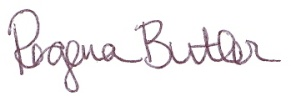 Rogena Butler